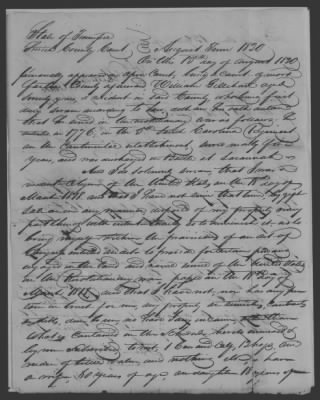 State of Tennessee
County Court August Term 1820
On this 18th day of August 1820
personally appeared in open Court, being a Court of record
for said County William aged
years, a resident in said County, who being first
duly sworn according to law, doth on his oath declare
that he served in the revolutionary war as follows: he
enlisted in 1776, in the 2nd South Carolina Regiment
on the Continental establishment
years, and was at Savannah
And I do solemnly swear, that I was a
resident Citizen of the United States, on the 18th day of
March 1818, and that I have not since that time, by gift
sale or in any manner, disposed of my property or any
part thereof, with intent thereby to diminish it, as to
bring myself within the provisions of an act of
Congress entitled an act to provide for certain persons
engaged in the land and naval service of the United States
in the revolutionary war, passed on the 18th day of
March 1818, and that I have not, nor has any person
in trust for me, any property, or securities, contracts
or debts, due to me, nor have I any income other than
what is contained in the Schedule hereto annexed &
by me subscribed to wit, 1 Cow and Calf,
and nothing else I have
a wife, 60 years of age, a daughter 18 years of